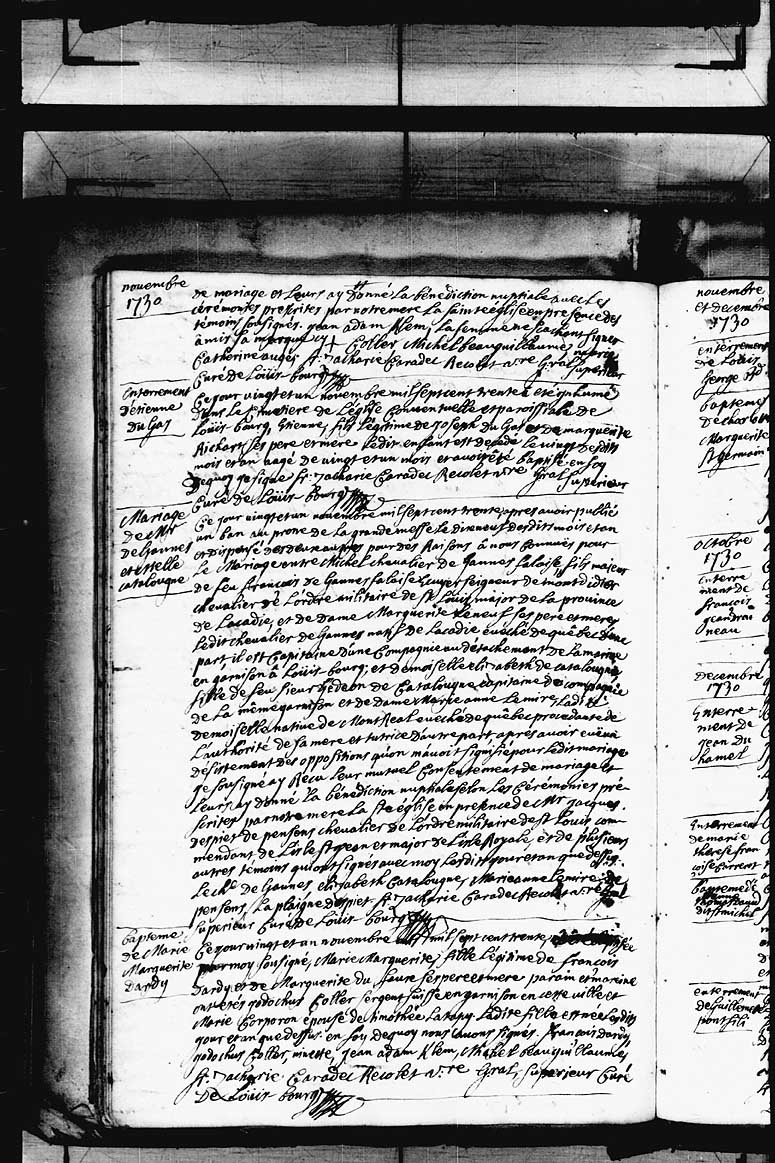 novembre
1730
de mariage et leurs ay donné La bénédiction nuptiale avec Les
cérémonies prescrites par notre mere La sainte église en presence des
témoins sousignés. jean adam Klem, La femme ne sachant signer
à mis sa marque + Coller Michel beauguillaume
Catherine auger fr. Zacharie Caradec Recolet v.re Gral superieur
Curé de Loüis-bourg
Enterrement
d'étienne
du Gas
Ce jour vingt et un novembre mil sept cent trente a été inhumé
dans Le Cimetiere de L'église Conventuelle et paroissiale de
Loüis-bourg, Etienne, fils Légitime de joseph du Gas et de marguerite
Richart ses pere et mere Ledit enfant est decedé Le vingt desdits
mois et an agé de vingt et un mois et avoit été baptisé en foy
Dequoy je signe fr. Zacharie Caradec Recolet v.re Gral superieur
Curé de Loüis-bourg
Mariage
de Mr
de Gannes
et Melle
catalougue
Ce jour vingt et un novembre mil sept cent trente, apres avoir publié
un ban au prone de La grande messe Le dixneuf desdits mois et an
et dispensé des deux autres pour des Raisons à nous Connuës pour
Le Mariage entre Michel chevalier de Gannes falaise, fils majeur
de feu francois de Gannes falaise Ecuyer seigeur de mont didier
chevalier de L'ordre militaire de St Louis major de La province
de Lacadie, et de Dame Marguerite Leneuf ses pere et mere,
Ledit chevalier de Gannes natif de Lacadie évêché de québec d'une
part, il est Capitaine d'une Compagnie au détachement de La marine
en garnison à Loüis-bourg; et demoiselle elizabeth de catalougne
fille de feu sieur Gédeon de Catalougne capitaine de compagnie
de La même garnison et de dame Marie anne Lemire, Ladite
demoiselle native de MontReal evêché de québec procedante de
L'authorité de sa mere et tutrice d'autre part, apres avoir eu un
désistement des oppositions qu'on m'avoit signifié pour Ledit mariage
Je sousigné ay Recu Leur mutuel Consentement de mariage et
Leurs ay donné La bénédiction nuptiale selon Les Cérémonies pré-
scrites par notre mere La Ste église en presence de Mr jacques
despiet de pensens chevalier de Lordre militaire de St Louis com-
mendant de L'isle St jean et major de L'isle Royale, et de plusieurs
autres témoins qui ont signés avec moy Lesdits jour et an que dessus.
Le Ch. de Gannes elizabeth Catalougne, Marie anne Lemire de
pensens La plaigne despiet fr. Zacharie Caradec Recolet v.re Gral
superieur Curé de Loüis-bourg
bapteme
de Marie
Marguerite
Dardy
Ce jour vingt et un novembre mil sept cent trente,
par moy sousigné, Marie Marguerite, fille Légitime de francois
Dardy et de Marguerite du faure ses pere et mere parain et maraine
ont etés jodochus Coller sergent suisse en garnison en cette ville et
Marie Corporon épouse de timothée Ladite fille est née Lesdits
jour et an que dessus. en foy dequoy nous avons signés. francois Dardy,
jodochus Coller, jean adam Klem, Michel beauguillaume,
fr. Zacharie Caradec Recolet v.re Gral, Superieur Curé
De Loüis-bourg
novembre
et decembre
1730
enterrement
de Loüis
George
baptemes
de
Marguerite
St germain
octobre
1730
Enterre
ment de
francois
neau
decembre
1730
Enterre-
ment de
jean Du
hamel
Enterrement
de marie
therese fran
coise
bapteme de
dit St michel
enterrement
de Guillemette